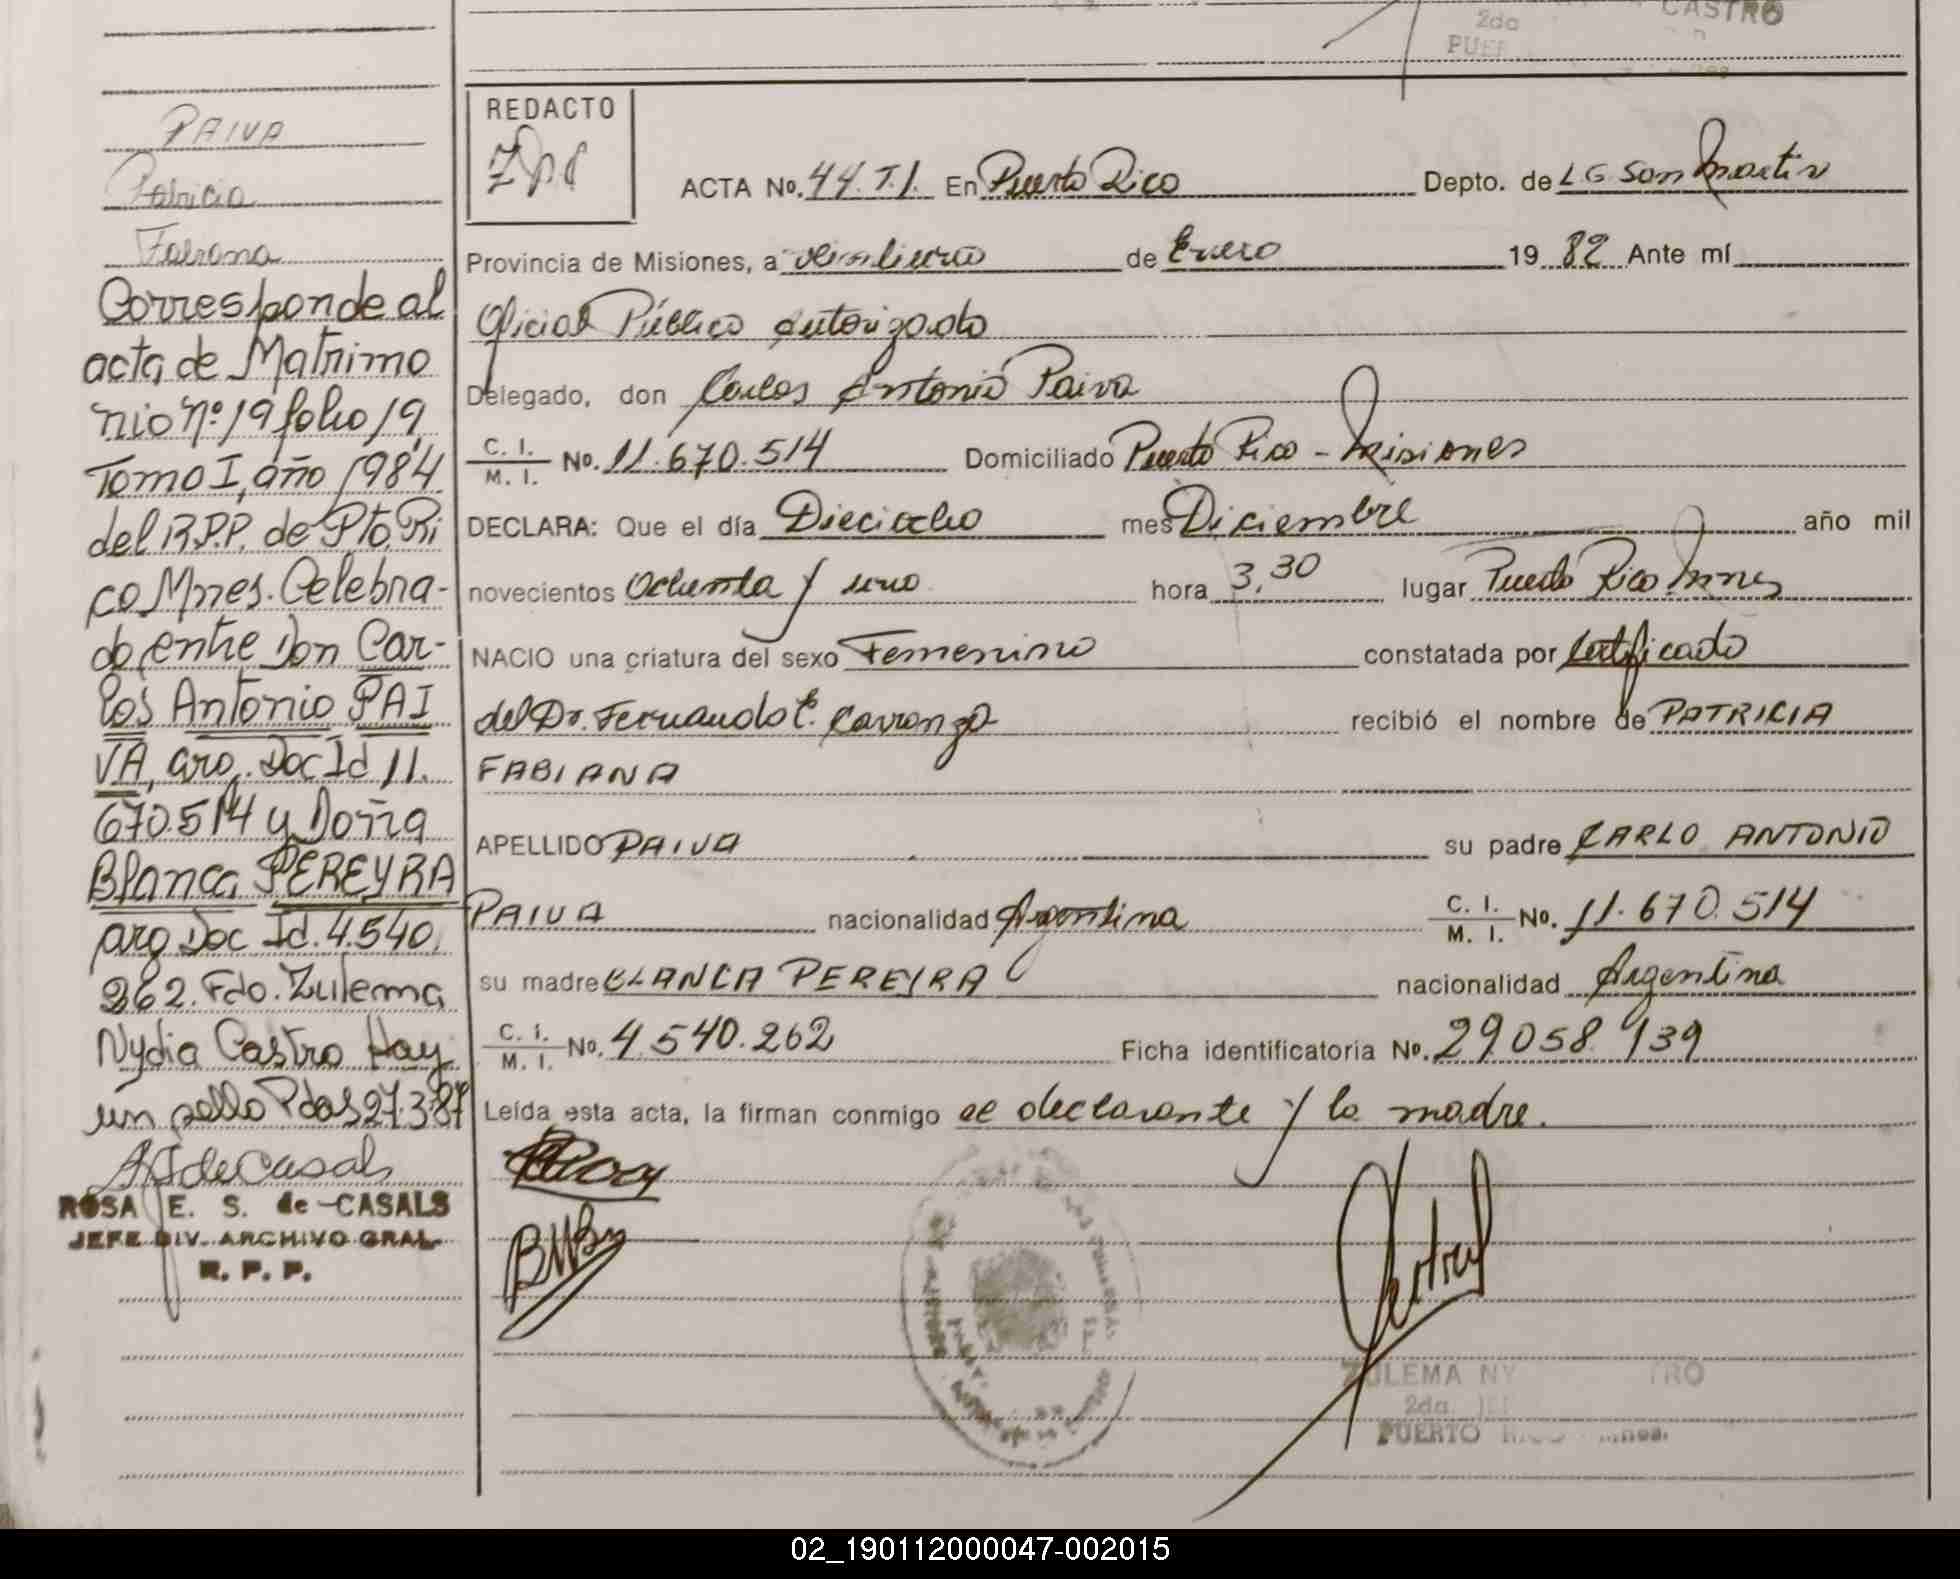 CASTRO
2da
PAIVA
Patricia
Fabiana
Corresponde al
acta de Matrimo
nio nº: 19 folio 19,
Tomo I, año 1984
del R.P.P. de Pto. Ri
co Mnes. Celebra-
do entre Don Car-
los Antonio PAI
VA, arg. Doc Id 11.
670.514 y Doña
Blanca PEREYRA
arg Doc Id. 4.540.
262. Fdo. Zulema
Nydia Castro Hay
un sello Pdas 27.3.87
ROSA E. S. de CASALS
JEFE DIV. ARCHIVO GRAL.
R. P. P.
REDACTO
ACTA No. 44. T.I. En Puerto Rico Depto. de L G. San Martin
Provincia de Misiones, a veintiuno de Enero 19 82 Ante mí
Oficial Público Autorizado
Delegado, don Carlos Antonio Paiva
C. I.
M. I. No. 11.670.514 Domiciliado Puerto Rico - Misiones
DECLARA: Que el día Dieciocho mes Diciembre año mil
novecientos Ochenta y uno hora 3,30 lugar Puerto Rico Mnes
NACIO una criatura del sexo Femenino constatada por Certificado
del Dr. Fernando C. Carranza recibió el nombre de PATRICIA
FABIANA
APELLIDO PAIVA su padre CARLO ANTONIO
PAIVA nacionalidad Argentina C. I.
M. I. No. 11.670.514
su madre BLANCA PEREYRA nacionalidad Argentina
C. I.
M. I. No. 4.540.262 Ficha identificatoria No. 29.058.939
Leída esta acta, la firman conmigo el declarante y la madre.
ZULEMA NY TRO
2da.
PUERTO Mnes.
02_190112000047-002015